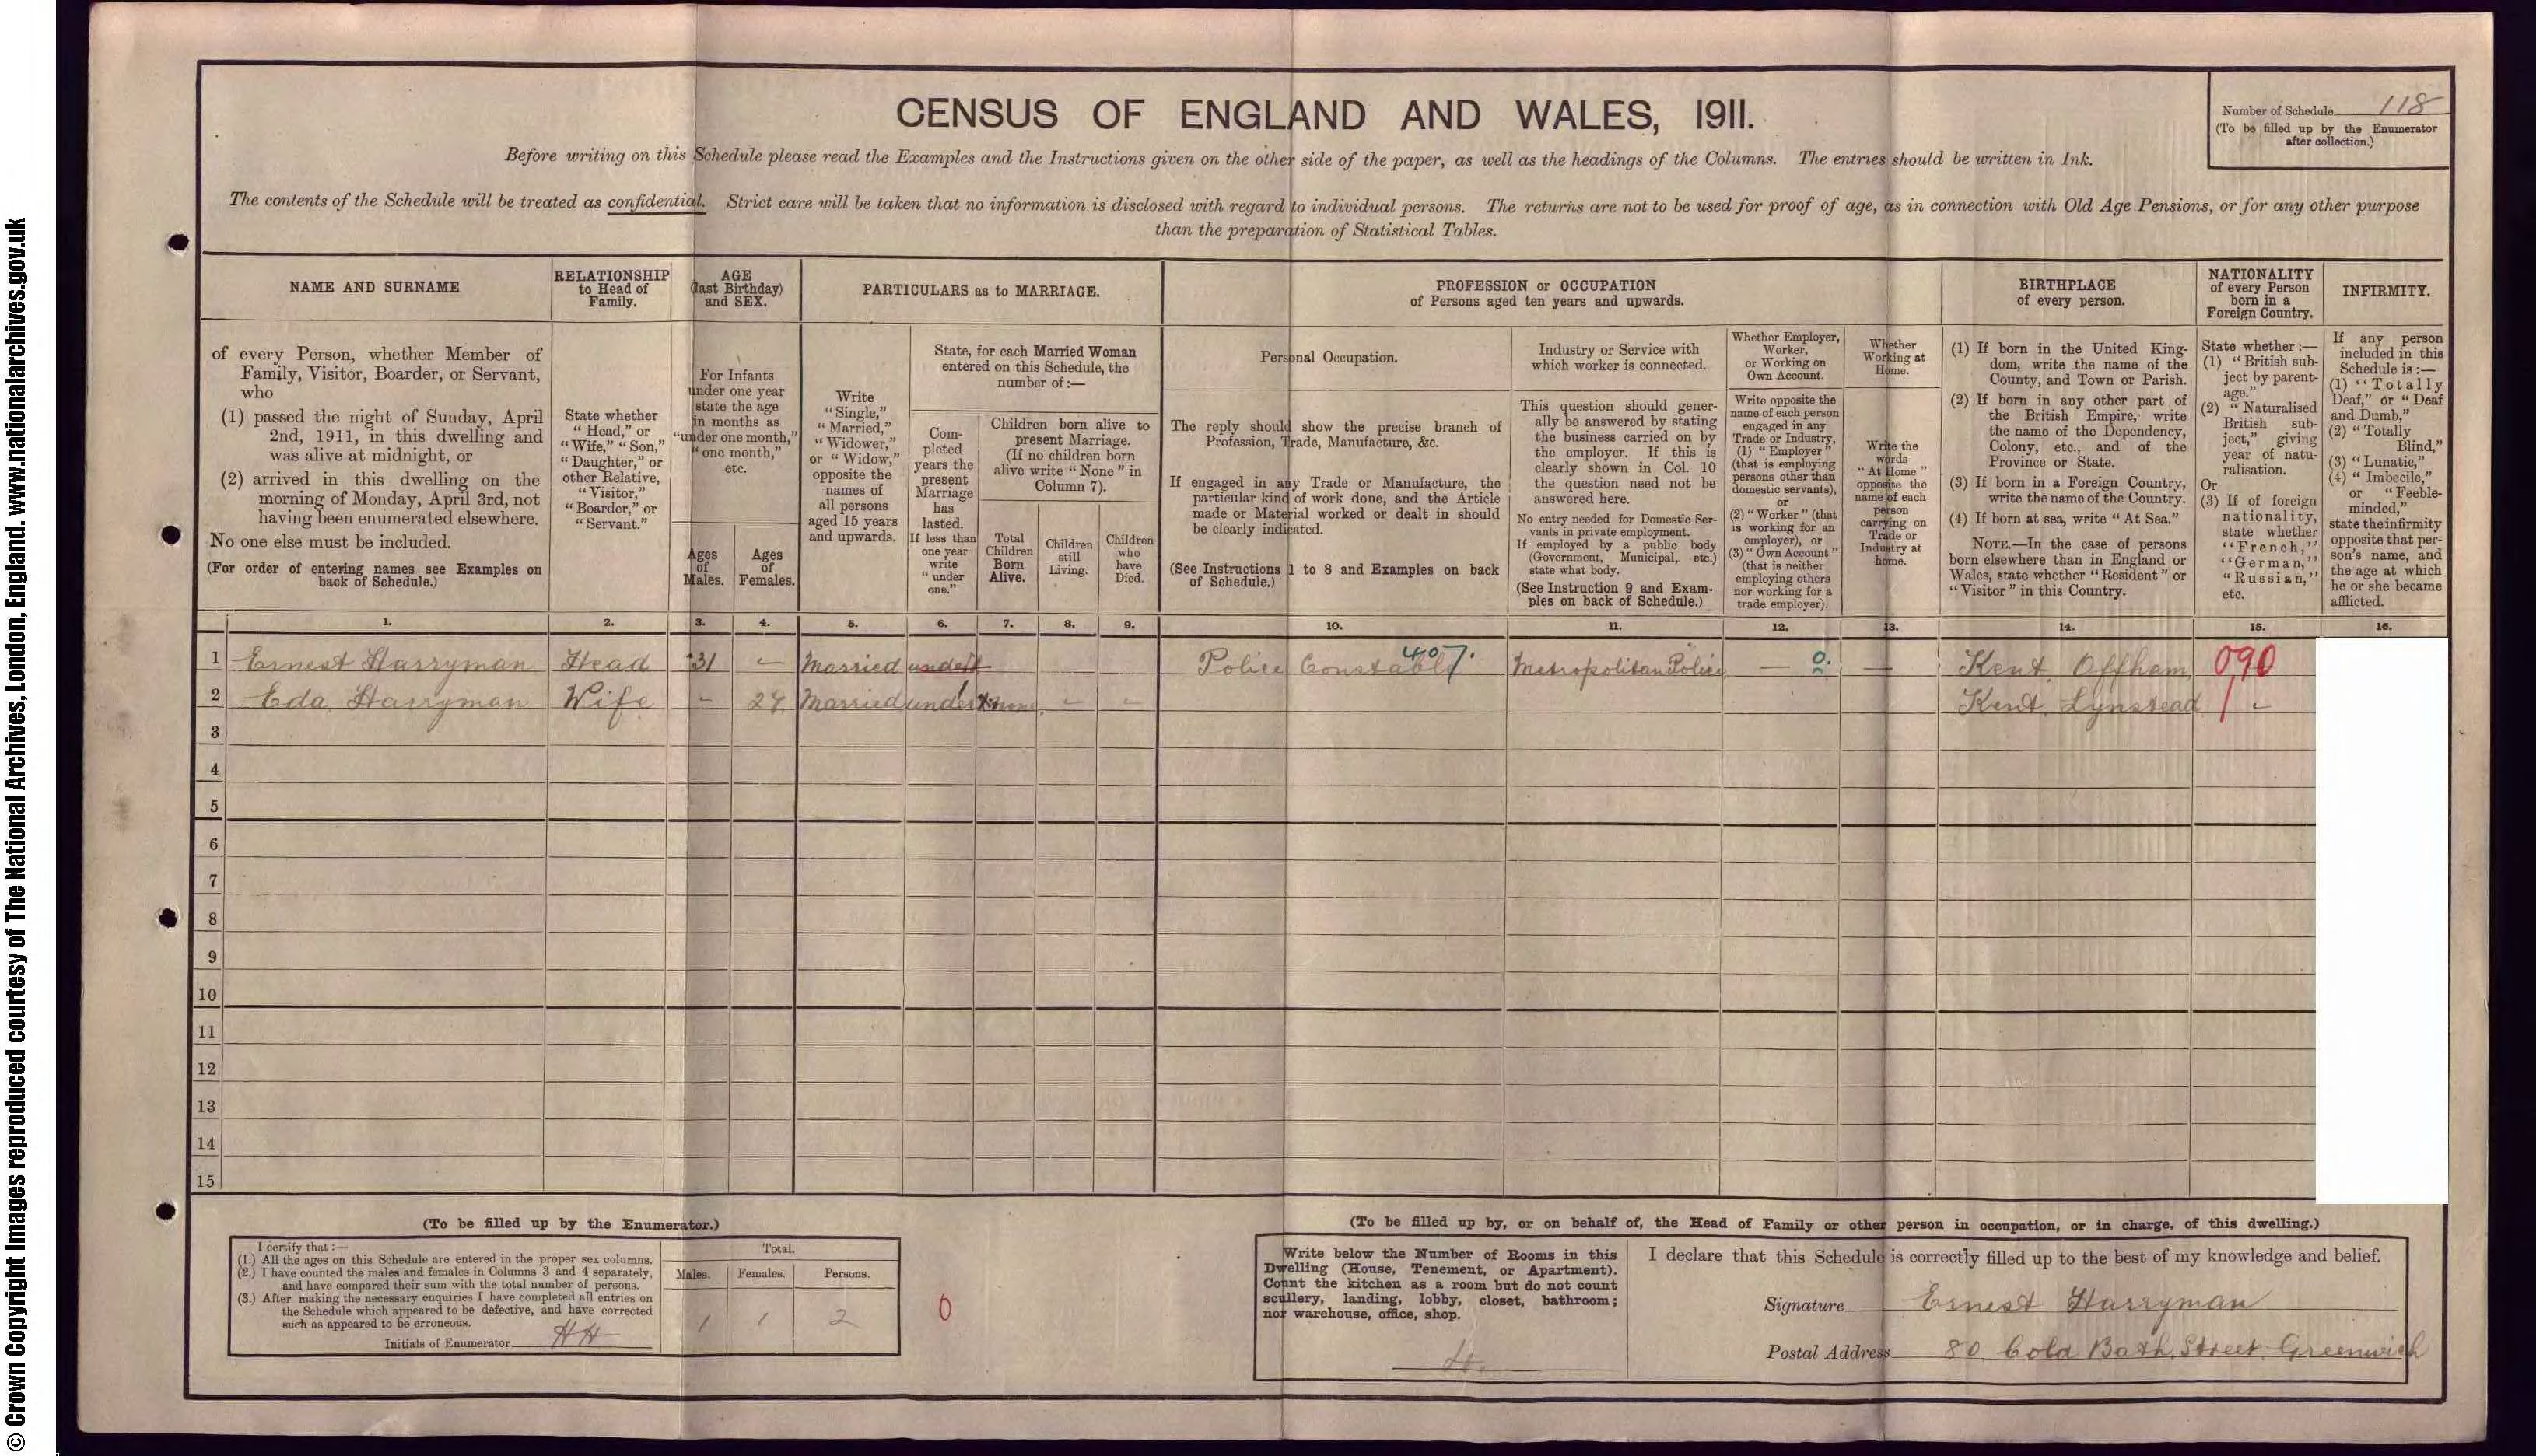 © Crown Copyright Images reproduced courtesy of The National Archives, London, England. www.nationalarchives.gov.uk
CENSUS OF ENGLAND AND WALES, 1911.
Number of Schedule 118
(To be filled up by the Enumerator
after collection.)
Before writing on this Schedule please read the Examples and the Instructions given on the other side of the paper, as well as the headings of the Columns. The entries should be written in Ink.
The contents of the Schedule will be treated as confidential. Strict care will be taken that no information is disclosed with regard to individual persons. The returns are not to be used for proof of age, as in connection with Old Age Pensions, or for any other purpose
than the preparation of Statistical Tables.
NAME AND SURNAME
of every Person, whether Member of
Family, Visitor, Boarder, or Servant,
who
(1) passed the night of Sunday, April
2nd, 1911, in this dwelling and
was alive at midnight, or
(2) arrived in this dwelling on the
morning of Monday, April 3rd, not
having been enumerated elsewhere.
No one else must be included.
(For order of entering names see Examples on
back of Schedule.)
RELATIONSHIP
to Head of
Family.
State whether
"Head," or
"Wife," "Son,"
"Daughter," or
other Relative,
"Visitor,"
"Boarder," or
"Servant."
AGE
(last Birthday)
and SEX.
For Infants
under one year
state the age
in months as
"under one month,"
"one month,"
etc.
Ages
of
Males.
Ages
of
Females.
PARTICULARS as to MARRIAGE.
Write
"Single,"
"Married,"
"Widower,"
or "Widow,"
opposite the
names of
all persons
aged 15 years
and upwards.
State, for each Married Woman
entered on this Schedule, the
number of :—
Com-
pleted
years the
present
Marriage
has
lasted.
If less than
one year
write
"under
one."
Children born alive to
present Marriage.
(If no children born
alive write "None" in
Column 7).
Total
Children
Born
Alive.
Children
still
Living.
Children
who
have
Died.
PROFESSION or OCCUPATION
of Persons aged ten years and upwards.
Personal Occupation.
The reply should show the precise branch of
Profession, Trade, Manufacture, &c.
If engaged in any Trade or Manufacture, the
particular kind of work done, and the Article
made or Material worked or dealt in should
be clearly indicated.
(See Instructions 1 to 8 and Examples on back
of Schedule.)
Industry or Service with
which worker is connected.
This question should gener-
ally be answered by stating
the business carried on by
the employer. If this is
clearly shown in Col. 10
the question need not be
answered here.
No entry needed for Domestic Ser-
vants in private employment.
If employed by a public body
(Government, Municipal, etc.)
state what body.
(See Instruction 9 and Exam-
ples on back of Schedule.)
Whether Employer,
Worker,
or Working on
Own Account.
Write opposite the
name of each person
engaged in any
Trade or Industry,
(1) "Employer"
(that is employing
persons other than
domestic servants),
or
(2) "Worker" (that
is working for an
employer), or
(3) "Own Account"
(that is neither
employing others
nor working for a
trade employer).
Whether
Working at
Home.
Write the
words
"At Home"
opposite the
name of each
person
carrying on
Trade or
Industry at
home.
BIRTHPLACE
of every person.
(1) If born in the United King-
dom, write the name of the
County, and Town or Parish.
(2) If born in any other part of
the British Empire, write
the name of the Dependency,
Colony, etc., and of the
Province or State.
(3) If born in a Foreign Country,
write the name of the Country.
(4) If born at sea, write "At Sea."
NOTE.—In the case of persons
born elsewhere than in England or
Wales, state whether "Resident" or
"Visitor" in this Country.
NATIONALITY
of every Person
born in a
Foreign Country.
State whether :—
(1) "British sub-
ject by parent-
age."
(2) "Naturalised
British sub-
ject," giving
year of natu-
ralisation.
Or
(3) If of foreign
nationality,
state whether
"French,"
"German,"
"Russian,"
etc.
INFIRMITY.
If any person
included in this
Schedule is :—
(1) "Totally
Deaf," or "Deaf
and Dumb,"
(2) "Totally
Blind,"
(3) "Lunatic,"
(4) "Imbecile,"
or "Feeble-
minded,"
state the infirmity
opposite that per-
son's name, and
the age at which
he or she became
afflicted.
1. 2. 3. 4. 5. 6. 7. 8. 9. 10. 11. 12. 13. 14. 15. 16.
1 Ernest Harryman Head 31 - Married under Police Constable 407. Metropolitan Police — 0. — Kent Offham 090
2 Eda Harryman Wife - Married under none - - Kent Lynstead 1 -
3
4
5
6
7
8
9
10
11
12
13
14
15
(To be filled up by the Enumerator.)
I certify that :—
(1.) All the ages on this Schedule are entered in the proper sex columns.
(2.) I have counted the males and females in Columns 3 and 4 separately,
and have compared their sum with the total number of persons.
(3.) After making the necessary enquiries I have completed all entries on
the Schedule which appeared to be defective, and have corrected
such as appeared to be erroneous.
Initials of Enumerator HH
Total.
Males. Females. Persons.
1 1 2
0
(To be filled up by, or on behalf of, the Head of Family or other person in occupation, or in charge, of this dwelling.)
Write below the Number of Rooms in this
Dwelling (House, Tenement, or Apartment).
Count the kitchen as a room but do not count
scullery, landing, lobby, closet, bathroom;
nor warehouse, office, shop.
4.
I declare that this Schedule is correctly filled up to the best of my knowledge and belief.
Signature Ernest Harryman
Postal Address 80, Cold Bath, Street, Greenwich